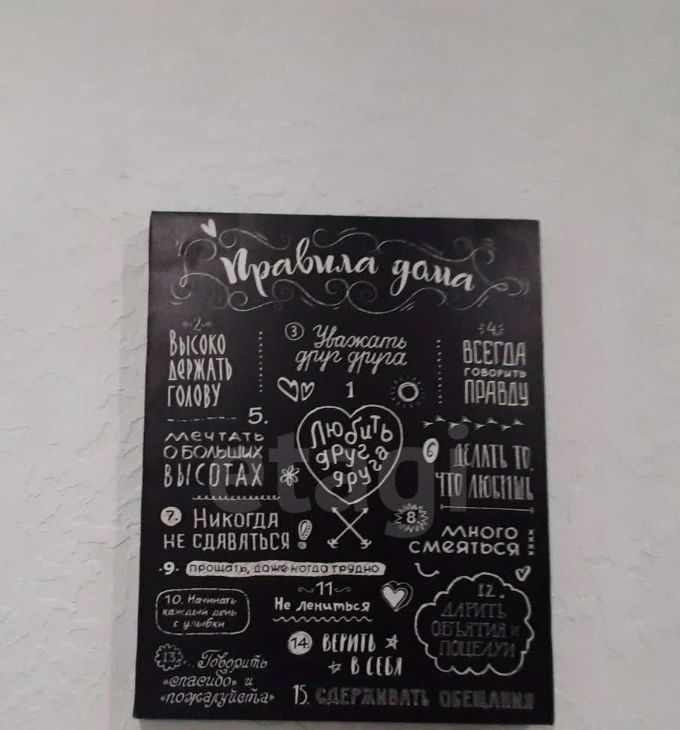 Правила дома
2.
Высоко
держать
голову
3
Уважать
друг друга
4.
Всегда
говорить
правду
1
Любить
друг
друга
5.
Мечтать
о больших
высотах
6
Делать то,
что любишь
7.
Никогда
не сдаваться!
8.
Много
смеяться
.9.
прощать, даже когда трудно
10. Начинать
каждый день
с улыбки
11
Не лениться
12.
Дарить
объятия и
поцелуи
13.
Говорить
«спасибо» и
«пожалуйста»
14.
Верить
в себя
15. Сдерживать обещания
etagi